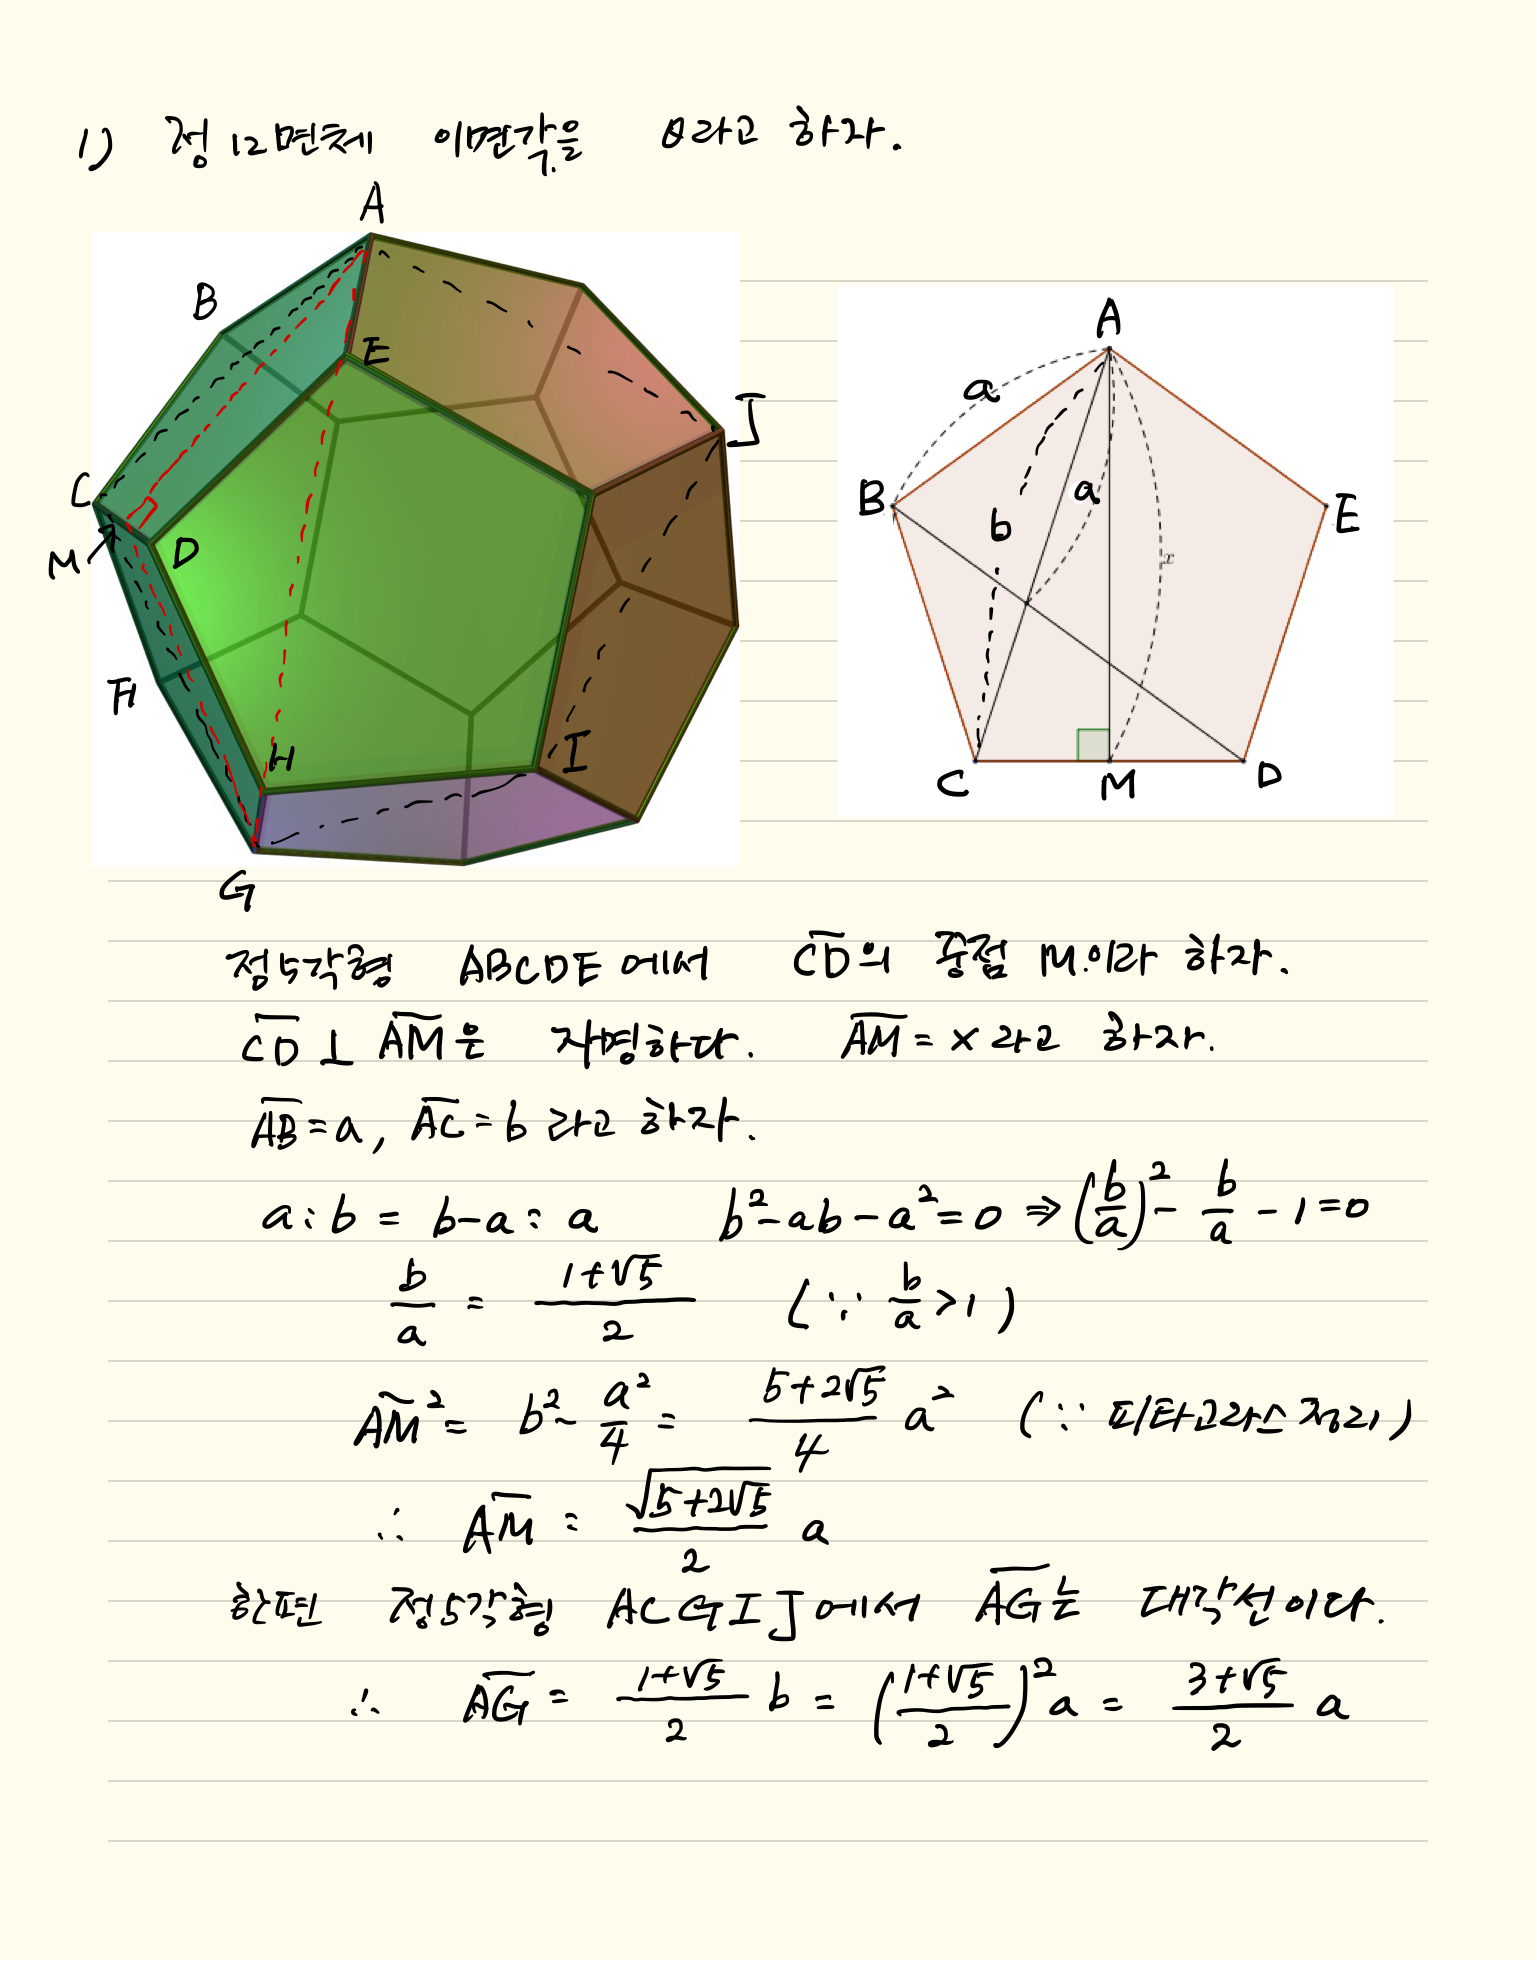 1) 정12면체 이면각을 θ라고 하자.
A
B
E
J
C
M
D
F
H
I
G
A
a
B
a
b
x
E
C
M
D
정5각형 ABCDE에서 \overline{CD}의 중점 M이라 하자.
\overline{CD} ⊥ \overline{AM}은 자명하다. \overline{AM} = x 라고 하자.
\overline{AB} = a, \overline{AC} = b 라고 하자.
a : b = b-a : a b²-ab-a²=0 ⇒ (b/a)² - b/a - 1 = 0
b/a = (1+√5)/2 (∵ b/a > 1)
\overline{AM}² = b² - a²/4 = (5+2√5)/4 a² (∵ 피타고라스 정리)
∴ \overline{AM} = √(5+2√5)/2 a
한편 정5각형 ACGIJ에서 \overline{AG}는 대각선이다.
∴ \overline{AG} = (1+√5)/2 b = ((1+√5)/2)² a = (3+√5)/2 a